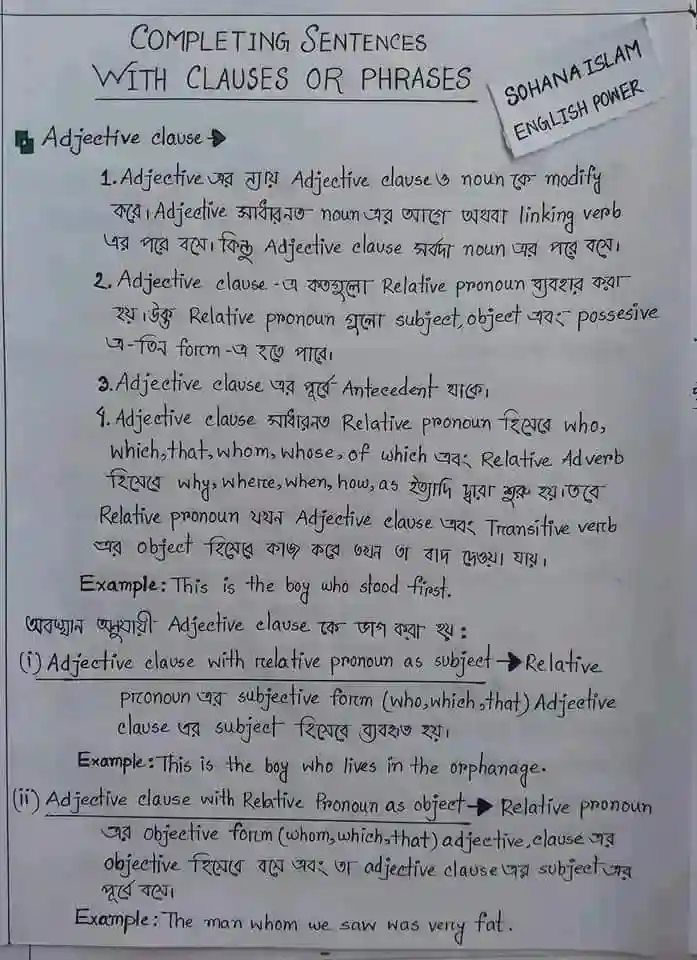 COMPLETING SENTENCES
WITH CLAUSES OR PHRASES
SOHANA ISLAM
ENGLISH POWER
Adjective clause →
1. Adjective এর ন্যায় Adjective clause ও noun কে modify
করে। Adjective সাধারনত noun এর আগে অথবা linking verb
এর পরে বসে। কিন্তু Adjective clause সর্বদা noun এর পরে বসে।
2. Adjective clause -এ কতগুলো Relative pronoun ব্যবহার করা
হয়। উক্ত Relative pronoun গুলো subject, object এবং possesive
এ-তিন form -এ হতে পারে।
3. Adjective clause এর পূর্বে Antecedent থাকে।
4. Adjective clause সাধারনত Relative pronoun হিসেবে who,
which, that, whom, whose, of which এবং Relative Adverb
হিসেবে why, where, when, how, as ইত্যাদি দ্বারা শুরু হয়। তবে
Relative pronoun যখন Adjective clause এবং Transitive verb
এর object হিসেবে কাজ করে তখন তা বাদ দেওয়া যায়।
Example: This is the boy who stood first.
অবস্থান অনুযায়ী Adjective clause কে ভাগ করা হয়:
(i) Adjective clause with relative pronoun as subject → Relative
pronoun এর subjective form (who, which, that) Adjective
clause এর subject হিসেবে ব্যবহৃত হয়।
Example: This is the boy who lives in the orphanage.
(ii) Adjective clause with Relative Pronoun as object → Relative pronoun
এর objective form (whom, which, that) adjective, clause এর
objective হিসেবে বসে এবং তা adjective clause এর subject এর
পূর্বে বসে।
Example: The man whom we saw was very fat.